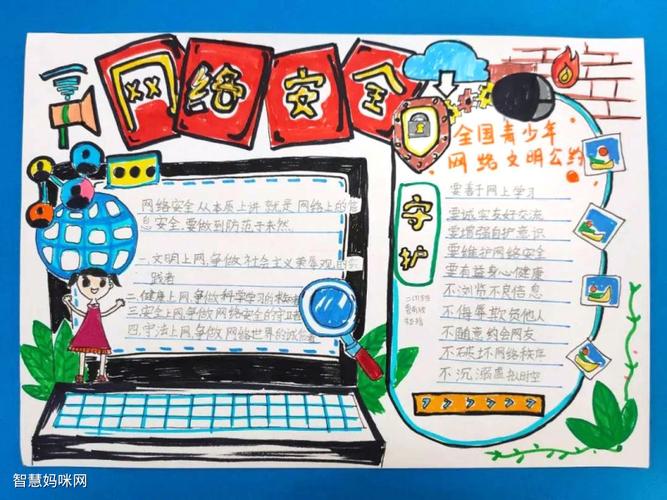 网络安全
网络安全从本质上讲就是网络上的信
息安全,要做到防范于未然
一.文明上网,争做社会主义荣辱观的实
践者
二.健康上网,争做科学学习的
三.安全上网,争做网络安全的守卫者
四.守法上网,争做网络世界的诚信者
全国青少年
网络文明公约
守护
要善于网上学习
要诚实友好交流
要增强自护意识
要维护网络安全
要有益身心健康
不浏览不良信息
不侮辱欺负他人
不随意约会网友
不破坏网络秩序
不沉溺虚拟时空
智慧妈咪网